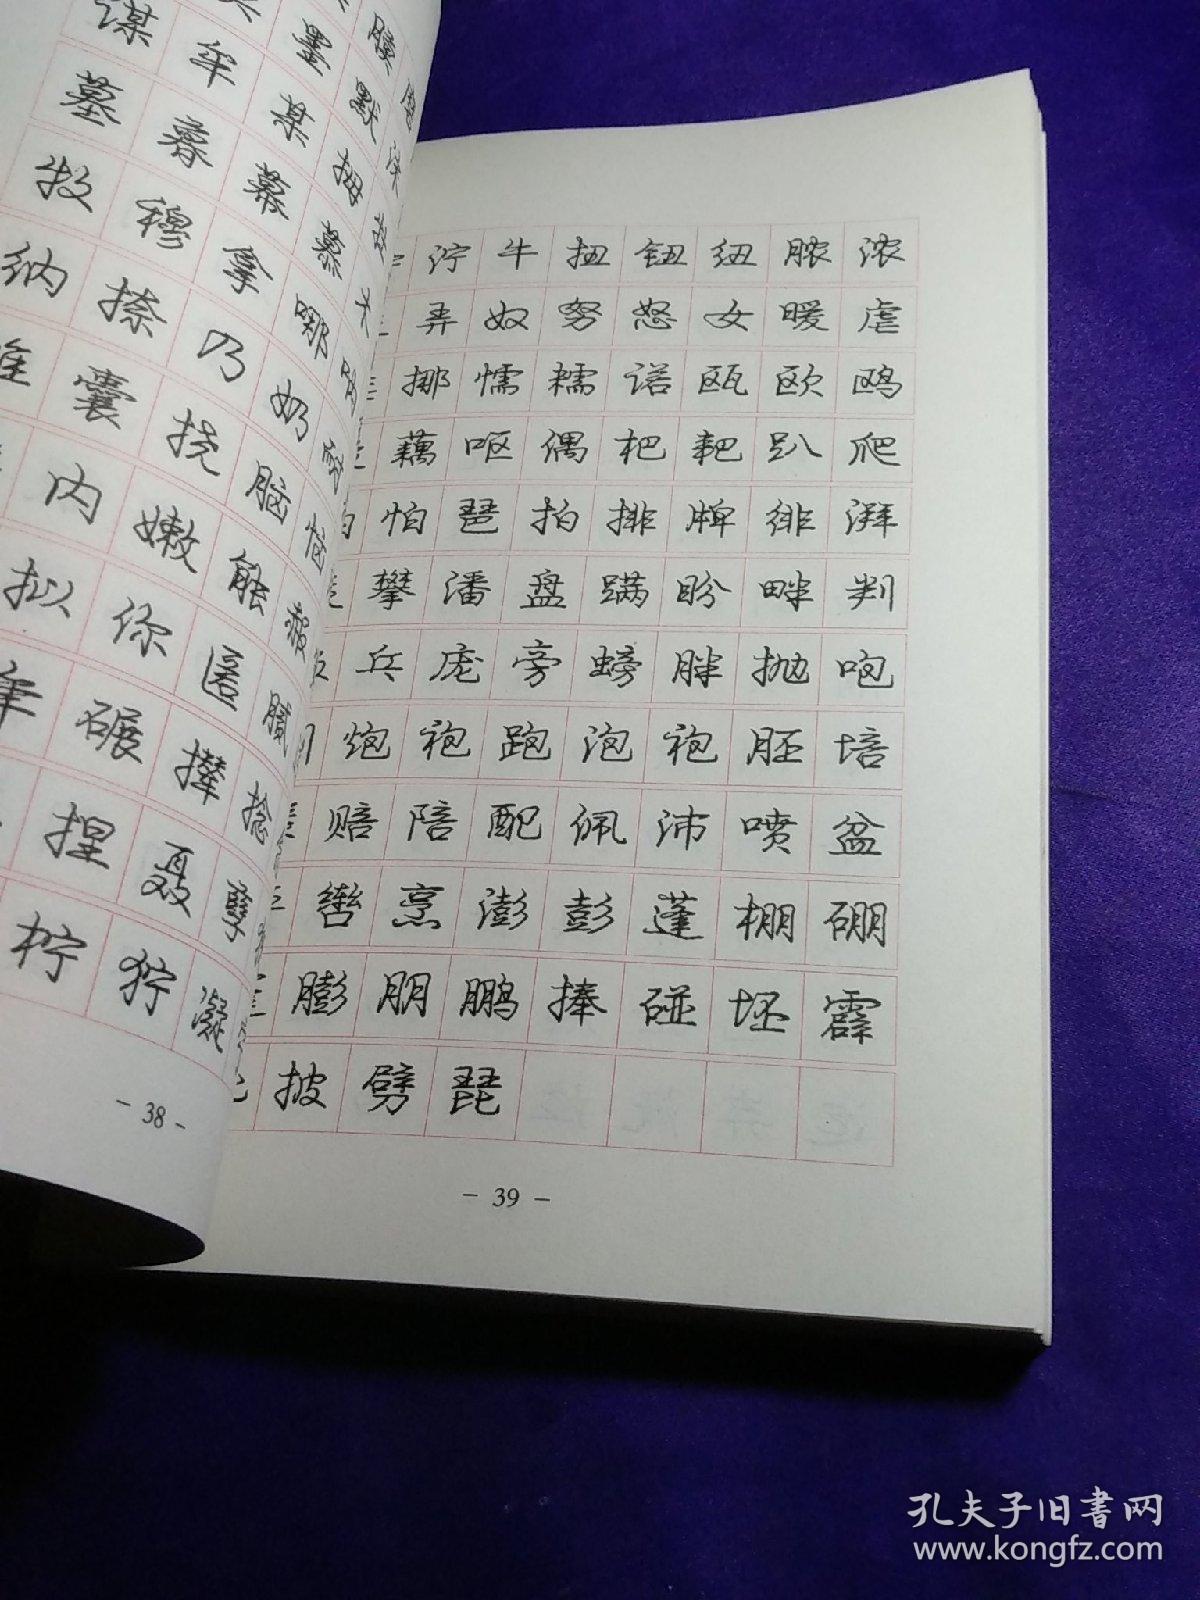 谋牟某拇
墓暮幕慕
牧穆拿哪
纳捺乃奶
囊挠脑恼
内嫩能
拟你匿腻
碾撵捻
捏聂孽
柠狞凝
- 38 -
泞牛扭钮纽脓浓
弄奴努怒女暖虐
挪懦糯诺瓯欧鸥
藕呕偶杷耙趴爬
怕琶拍排牌徘湃
攀潘盘蹒盼畔判
乓庞旁螃胖抛咆
炮袍跑泡袍胚培
赔陪配佩沛喷盆
辔烹澎彭蓬棚硼
膨朋鹏捧碰坯霹
披劈琵
- 39 -
孔夫子旧书网
www.kongfz.com